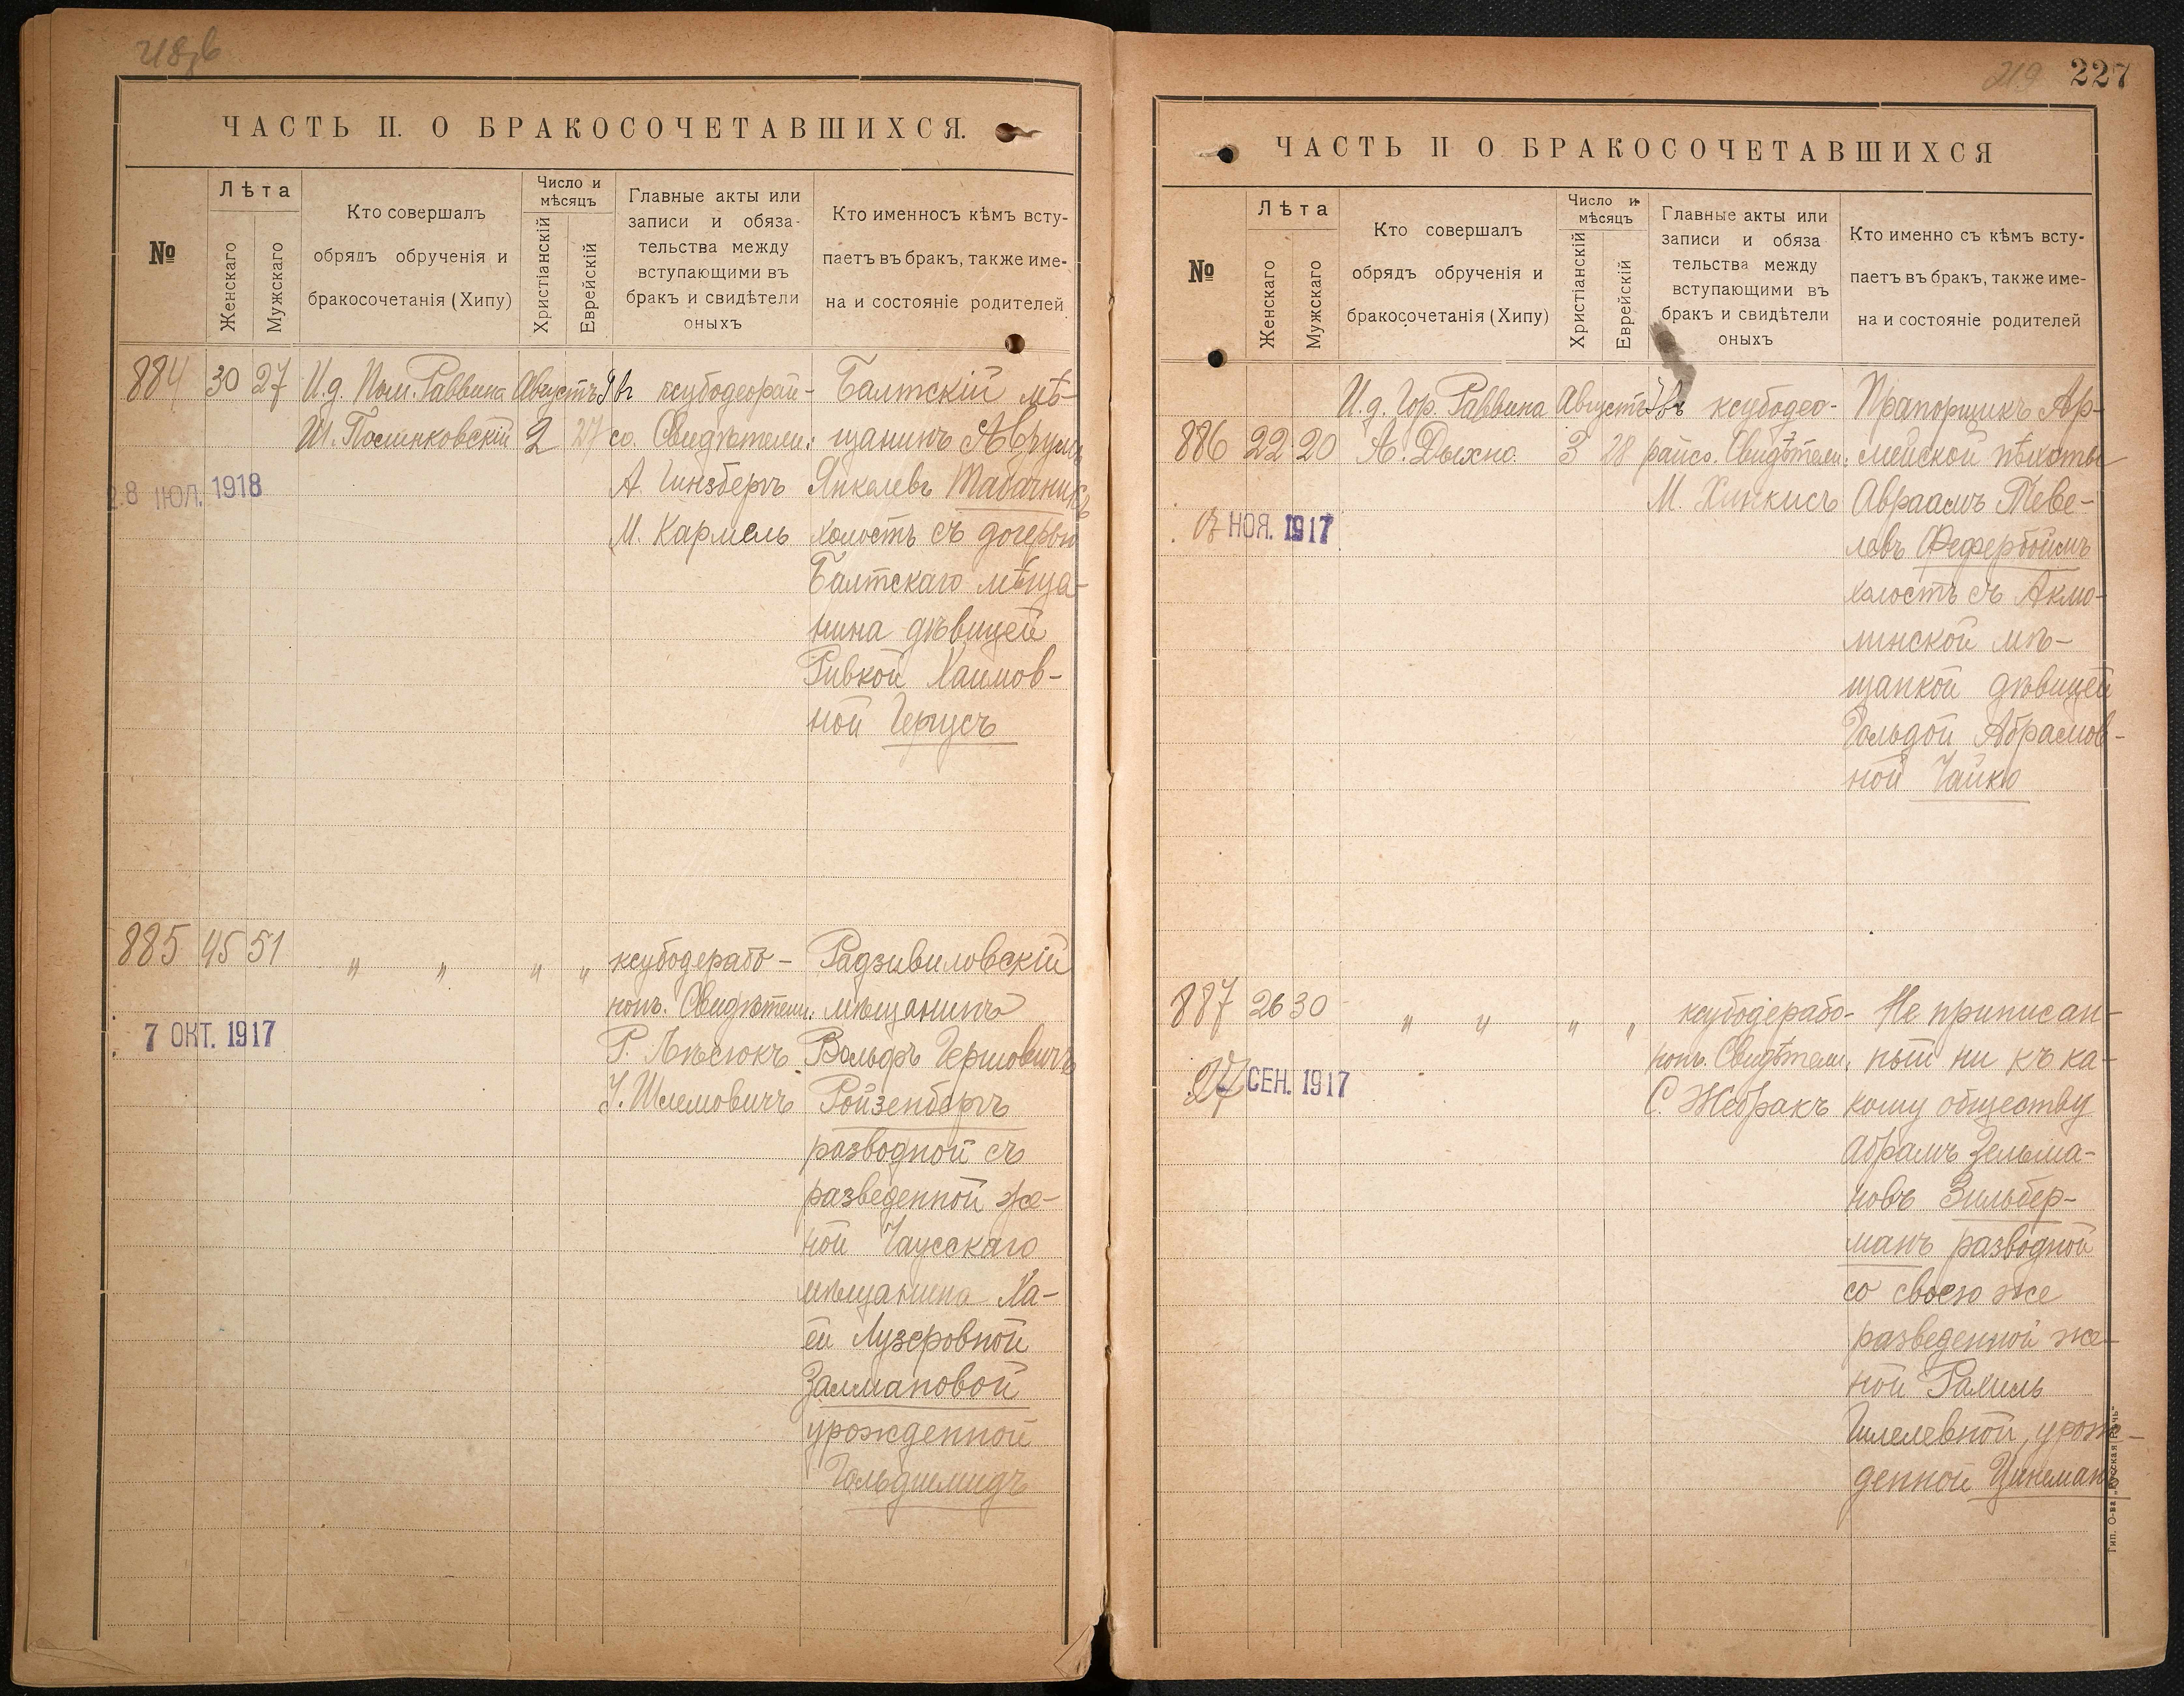 ЧАСТЬ II. О БРАКОСОЧЕТАВШИХСЯ.
№
Лѣта
Женскаго
Мужскаго
Кто совершалъ
обрядъ обрученія и
бракосочетанія (Хипу)
Число и
мѣсяцъ
Христіанскій
Еврейскій
Главные акты или
записи и обяза-
тельства между
вступающими въ
бракъ и свидѣтели
оныхъ
Кто именносъ кѣмъ всту-
паетъ въ бракъ, также име-
на и состояніе родителей
884 30 27
И.д. Пом. Раввина
Августъ
2 27
ксубодеорай-
со. Свидѣтели:
А. Гинзбергъ
М. Кармель
Балтскій мѣ-
щанинъ Аврумъ
Янкелевъ Табачникъ
холостъ съ дочерью
Балтскаго мѣща-
нина дѣвицей
Ривкой Хаимов-
ной Герусъ
28 ІЮЛ. 1918
885 45 51
" " " "
ксубодерабо-
нонъ. Свидѣтели:
Р. Лѣсюкъ
У. Шлемовичъ
Радзивиловскій
мѣщанинъ
Вольфъ Гершовичъ
Ройзенбергъ
разводной съ
разведенной же-
ной Чаусскаго
мѣщанина Ха-
ей Лузеровной
Залмановой
урожденной
Гольдшмидъ
7 ОКТ. 1917
219 227
ЧАСТЬ II О БРАКОСОЧЕТАВШИХСЯ
№
Лѣта
Женскаго
Мужскаго
Кто совершалъ
обрядъ обрученія и
бракосочетанія (Хипу)
Число и
мѣсяцъ
Христіанскій
Еврейскій
Главные акты или
записи и обяза
тельства между
вступающими въ
бракъ и свидѣтели
оныхъ
Кто именно съ кѣмъ всту-
паетъ въ бракъ, также име-
на и состояніе родителей
886 22 20
И.д. Гор. Раввина
А. Дыхно.
Августъ
3 28
ксубодео-
райсо. Свидѣтели:
М. Хинкисъ
Прапорщикъ Ар-
мейской пѣхоты
Авраамъ Теве-
левъ Фефербоймъ
холостъ съ Акмо-
линской мѣ-
щанкой дѣвицей
Гольдой Абрамов-
ной Чайко
НОЯ. 1917
887 26 30
" " " "
ксубодерабо-
нонъ. Свидѣтели:
С. Жебракъ
Не приписан-
ный ни къ ка-
кому обществу
Абрамъ Зельма-
новъ Зильбер-
манъ разводной
со своею же
разведенной же-
ной Рахиль
Гилелевной, урож-
денной Цинеманъ
27 СЕН. 1917
Тип. О-ва „Русская Рѣчь"